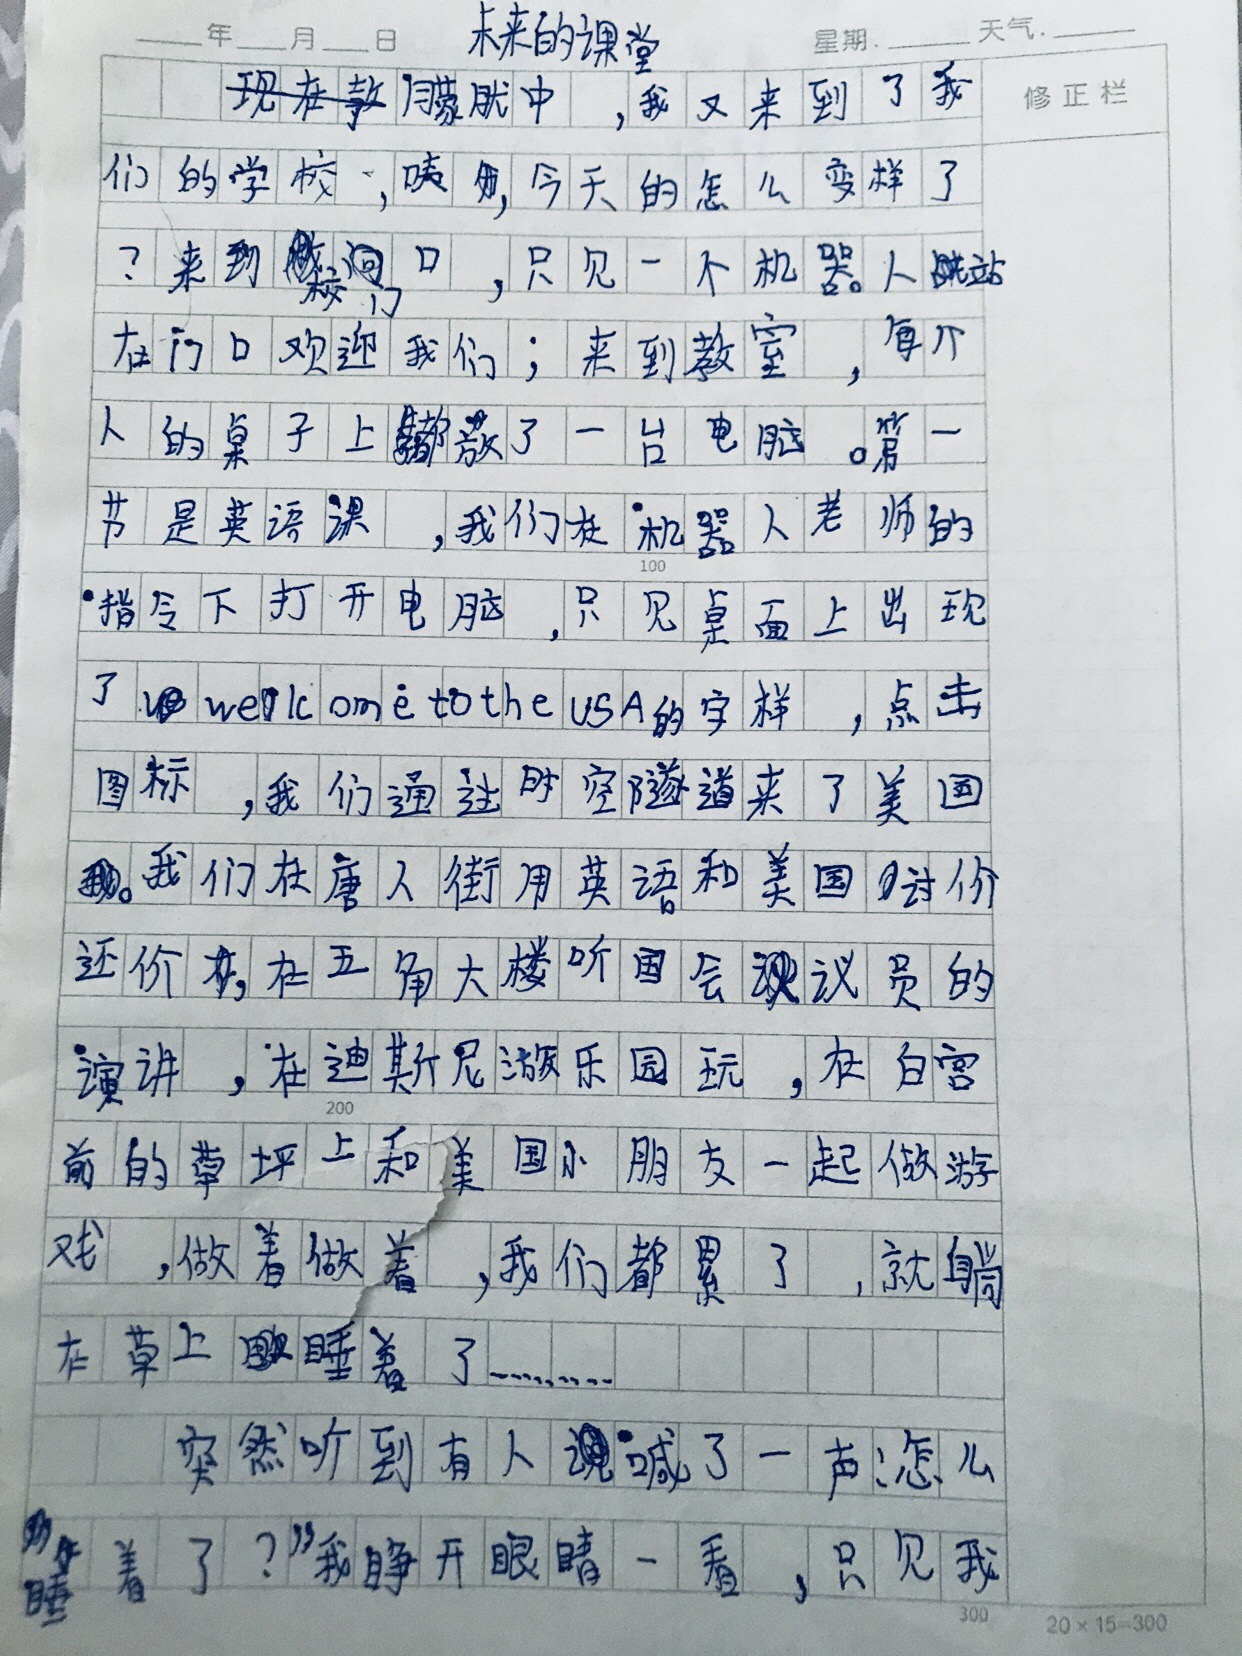 未来的课堂
年 月 日 星期. 天气.
修正栏
朦胧中，我又来到了我
们的学校，咦，今天的怎么变样了
？来到校门口，只见一个机器人站
在门口欢迎我们；来到教室，每个
人的桌子上都放了一台电脑。第一
节是英语课，我们在机器人老师的
100
指令下打开电脑，只见桌面上出现
了 welcome to the USA的字样，点击
图标，我们通过时空隧道来了美国
。我们在唐人街用英语和美国讨价
还价，在五角大楼听国会议员的
演讲，在迪斯尼游乐园玩，在白宫
200
前的草坪上和美国小朋友一起做游
戏，做着做着，我们都累了，就躺
在草上睡着了………
突然听到有人喊了一声：怎么
睡着了？”我睁开眼睛一看，只见我
300
20×15=300